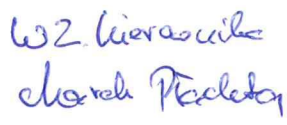 WZ. Kierownika
Marek Płachta